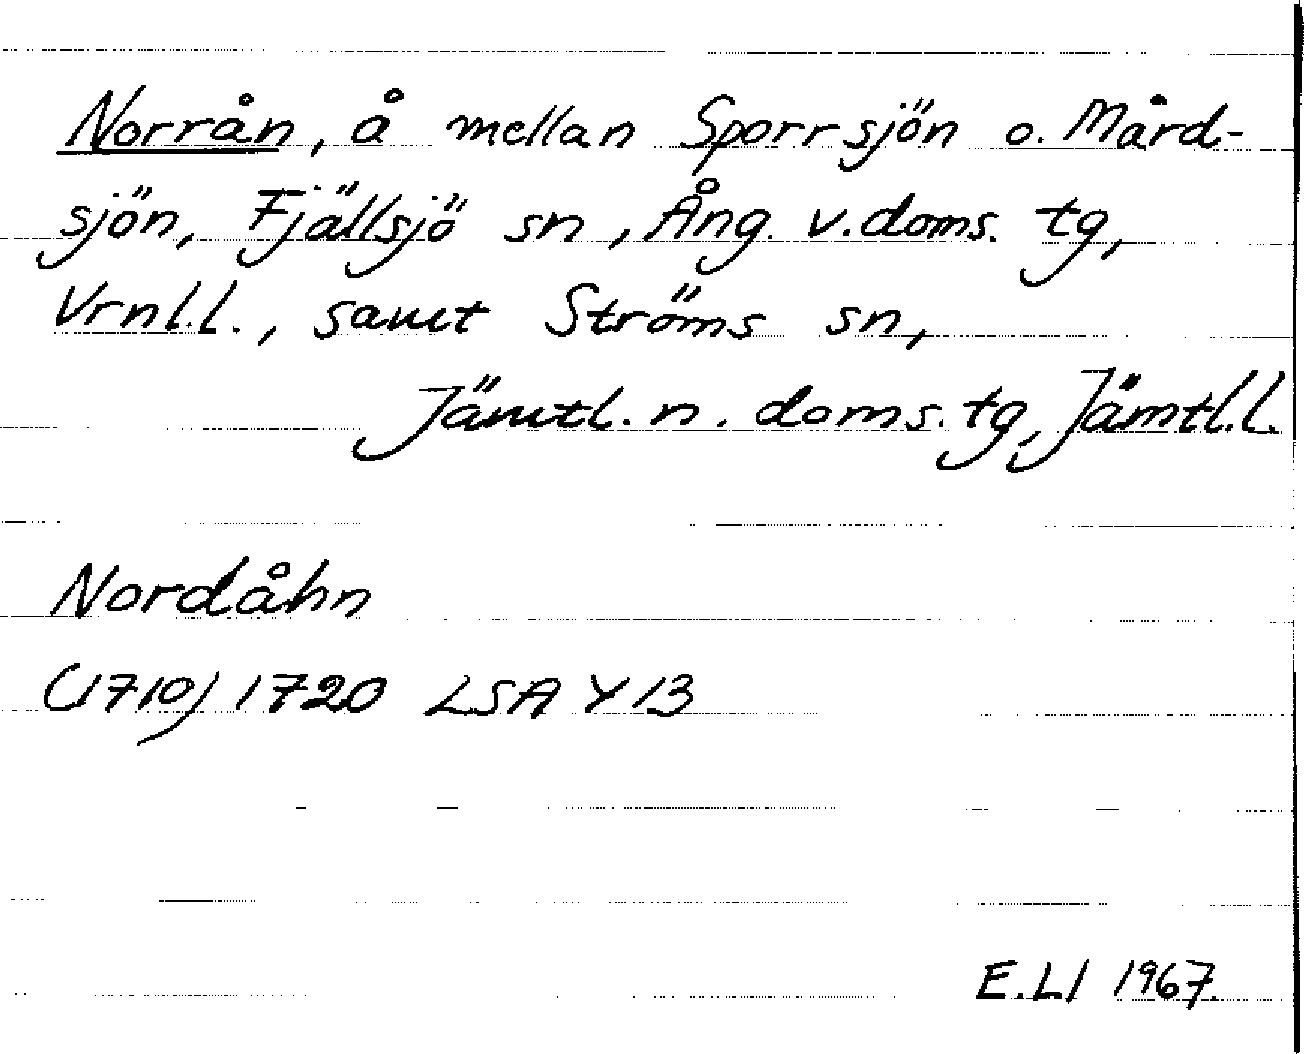 Norrån, å mellan Sporrsjön o. Mård-
sjön, Fjällsjö sn, Ång. v. doms. tg,
Vrnl.l., samt Ströms sn,
Jämtl. n. doms. tg, Jämtl.l.
Nordåhn
(1710) 1720 LSA Y 13
E.LI 1967.